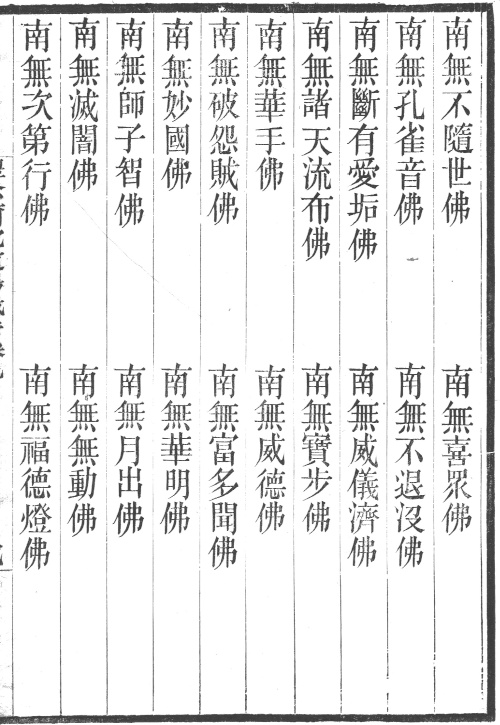 南無不隨世佛　南無喜眾佛
南無孔雀音佛　南無不退沒佛
南無斷有愛垢佛　南無威儀濟佛
南無諸天流布佛　南無寶步佛
南無華手佛　南無威德佛
南無破怨賊佛　南無富多聞佛
南無妙國佛　南無華明佛
南無師子智佛　南無月出佛
南無滅闇佛　南無無動佛
南無次第行佛　南無福德燈佛